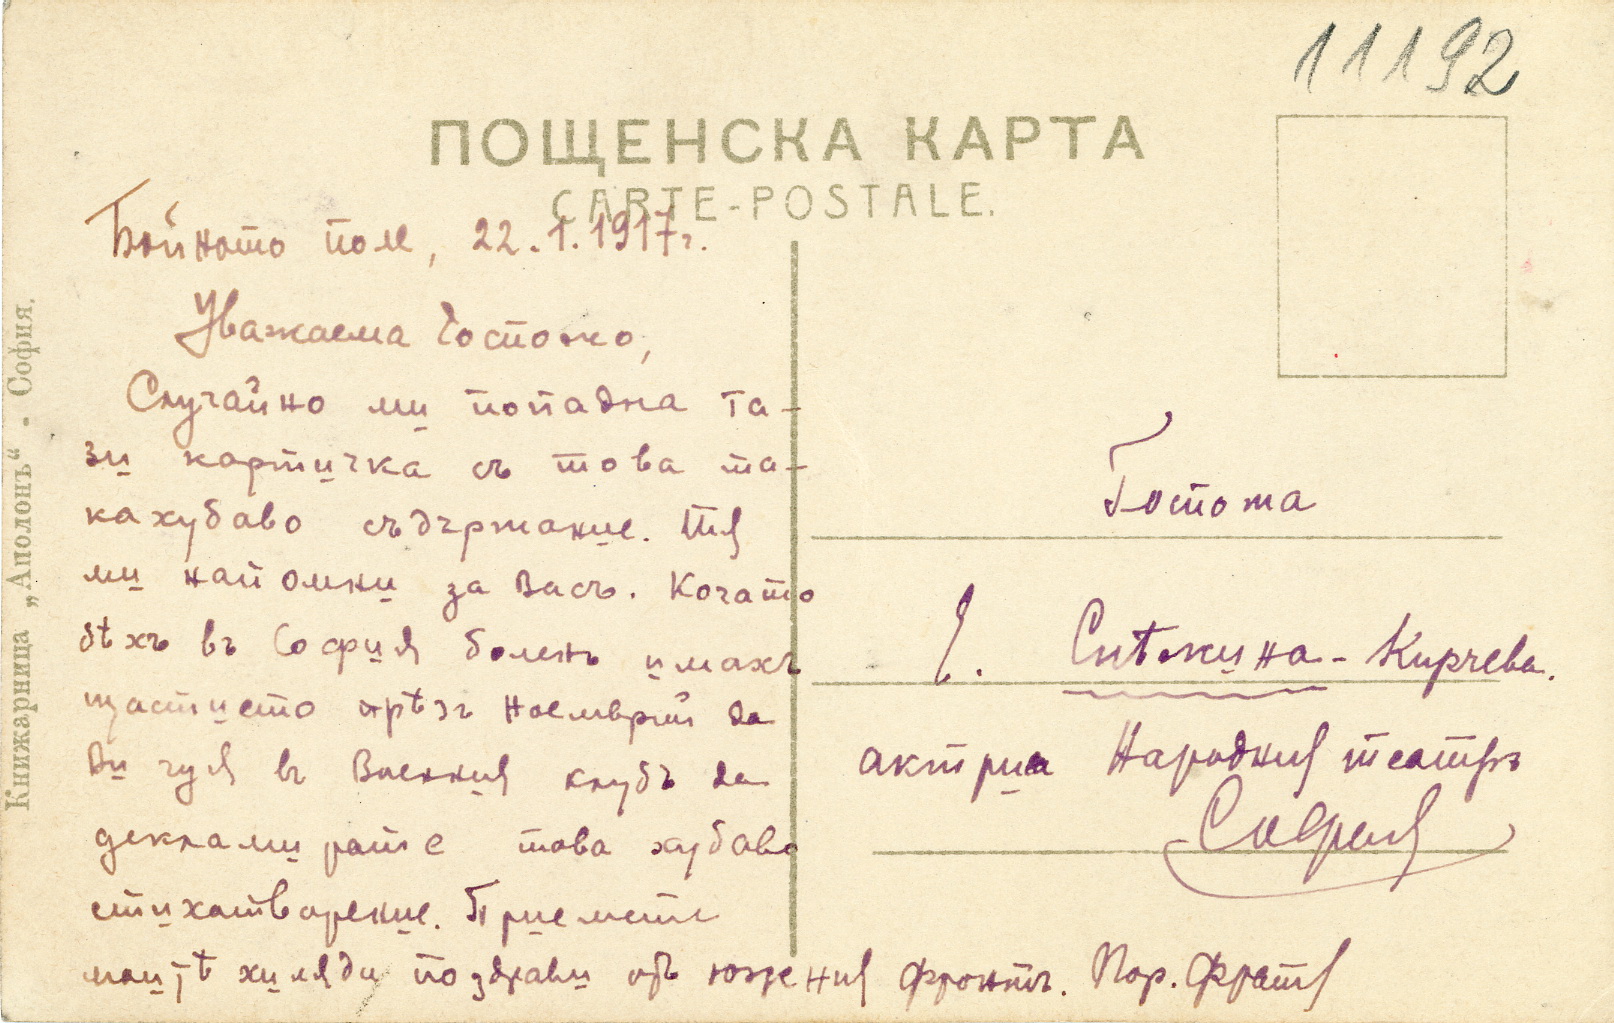 11192
ПОЩЕНСКА КАРТА
CARTE-POSTALE.
Бойното поле, 22.1.1917г.
Уважаема Госпожо,
Случайно ми попадна та-
зи картичка съ това та-
ка хубаво съдържание. Тя
ми напомни за Васъ. Когато
бѣхъ въ София боленъ имахъ
щастието прѣзъ Ноемврий да
Ви чуя въ Военния клубъ да
декламирате това хубаво
стихотворение. Приемете
моитѣ хиляди поздрави отъ южния фронтъ. Пор.
Госпожа
Снѣжина-Кирчева.
актриса Народния театръ
София
Книжарница „Аполонъ“ - София.